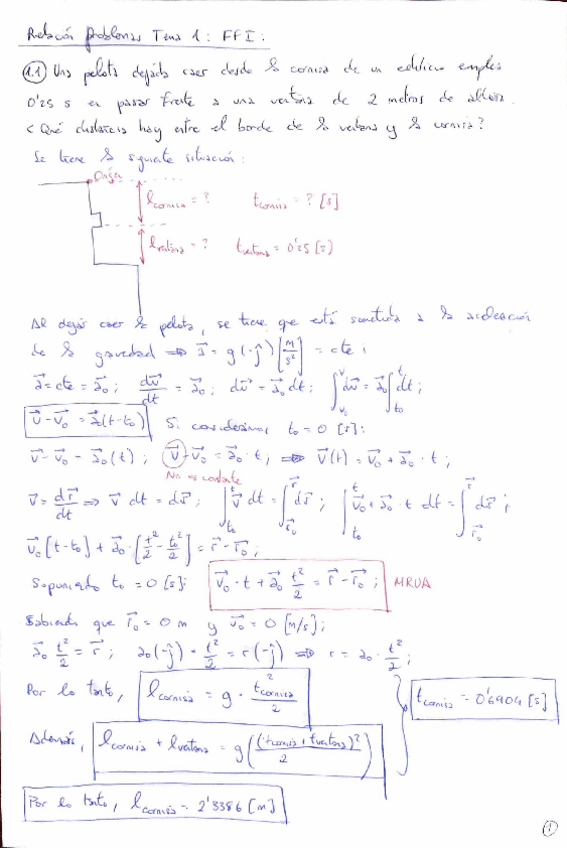 Relación problemas Tema 1: FFI:
1.1 Una pelota dejada caer desde la cornisa de un edificio emplea
0'25 s en pasar frente a una ventana de 2 metros de altura.
¿Qué distancia hay entre el borde de la ventana y la cornisa?
Se tiene la siguiente situación:
Origen
l_cornisa = ? t_cornisa = ? [s]
l_ventana = ? t_ventana = 0'25 [s]
Al dejar caer la pelota, se tiene que está sometida a la aceleración
de la gravedad ⇒ a⃗ = g(-ĵ) [m/s²] = cte;
a⃗ = cte = a⃗₀; dv⃗/dt = a⃗₀; dv⃗ = a⃗₀ dt; ∫dv⃗ = a⃗₀ ∫dt;
v⃗ - v⃗₀ = a⃗₀(t-t₀) Si consideramos t₀ = 0 [s]:
v⃗ - v⃗₀ = a⃗₀(t); v⃗ - v⃗₀ = a⃗₀ · t; ⇒ v⃗(t) = v⃗₀ + a⃗₀ · t;
No es constante
v⃗ = dr⃗/dt ⇒ v⃗ dt = dr⃗; ∫v⃗ dt = ∫dr⃗; ∫v⃗₀ + a⃗₀ · t dt = ∫dr⃗;
v⃗₀[t-t₀] + a⃗₀ · [t²/2 - t₀²/2] = r⃗ - r⃗₀;
Suponiendo t₀ = 0 [s]: v⃗₀ · t + a⃗₀ t²/2 = r⃗ - r⃗₀; MRUA
Sabiendo que r⃗₀ = 0 m y v⃗₀ = 0 [m/s];
a⃗₀ t²/2 = r⃗; a₀(-ĵ) · t²/2 = r(-ĵ) ⇒ r = a₀ · t²/2;
Por lo tanto, l_cornisa = g · t_cornisa²/2
t_cornisa = 0'6904 [s]
Además, l_cornisa + l_ventana = g((t_cornisa + t_ventana)²/2)
Por lo tanto, l_cornisa = 2'3386 [m]
1